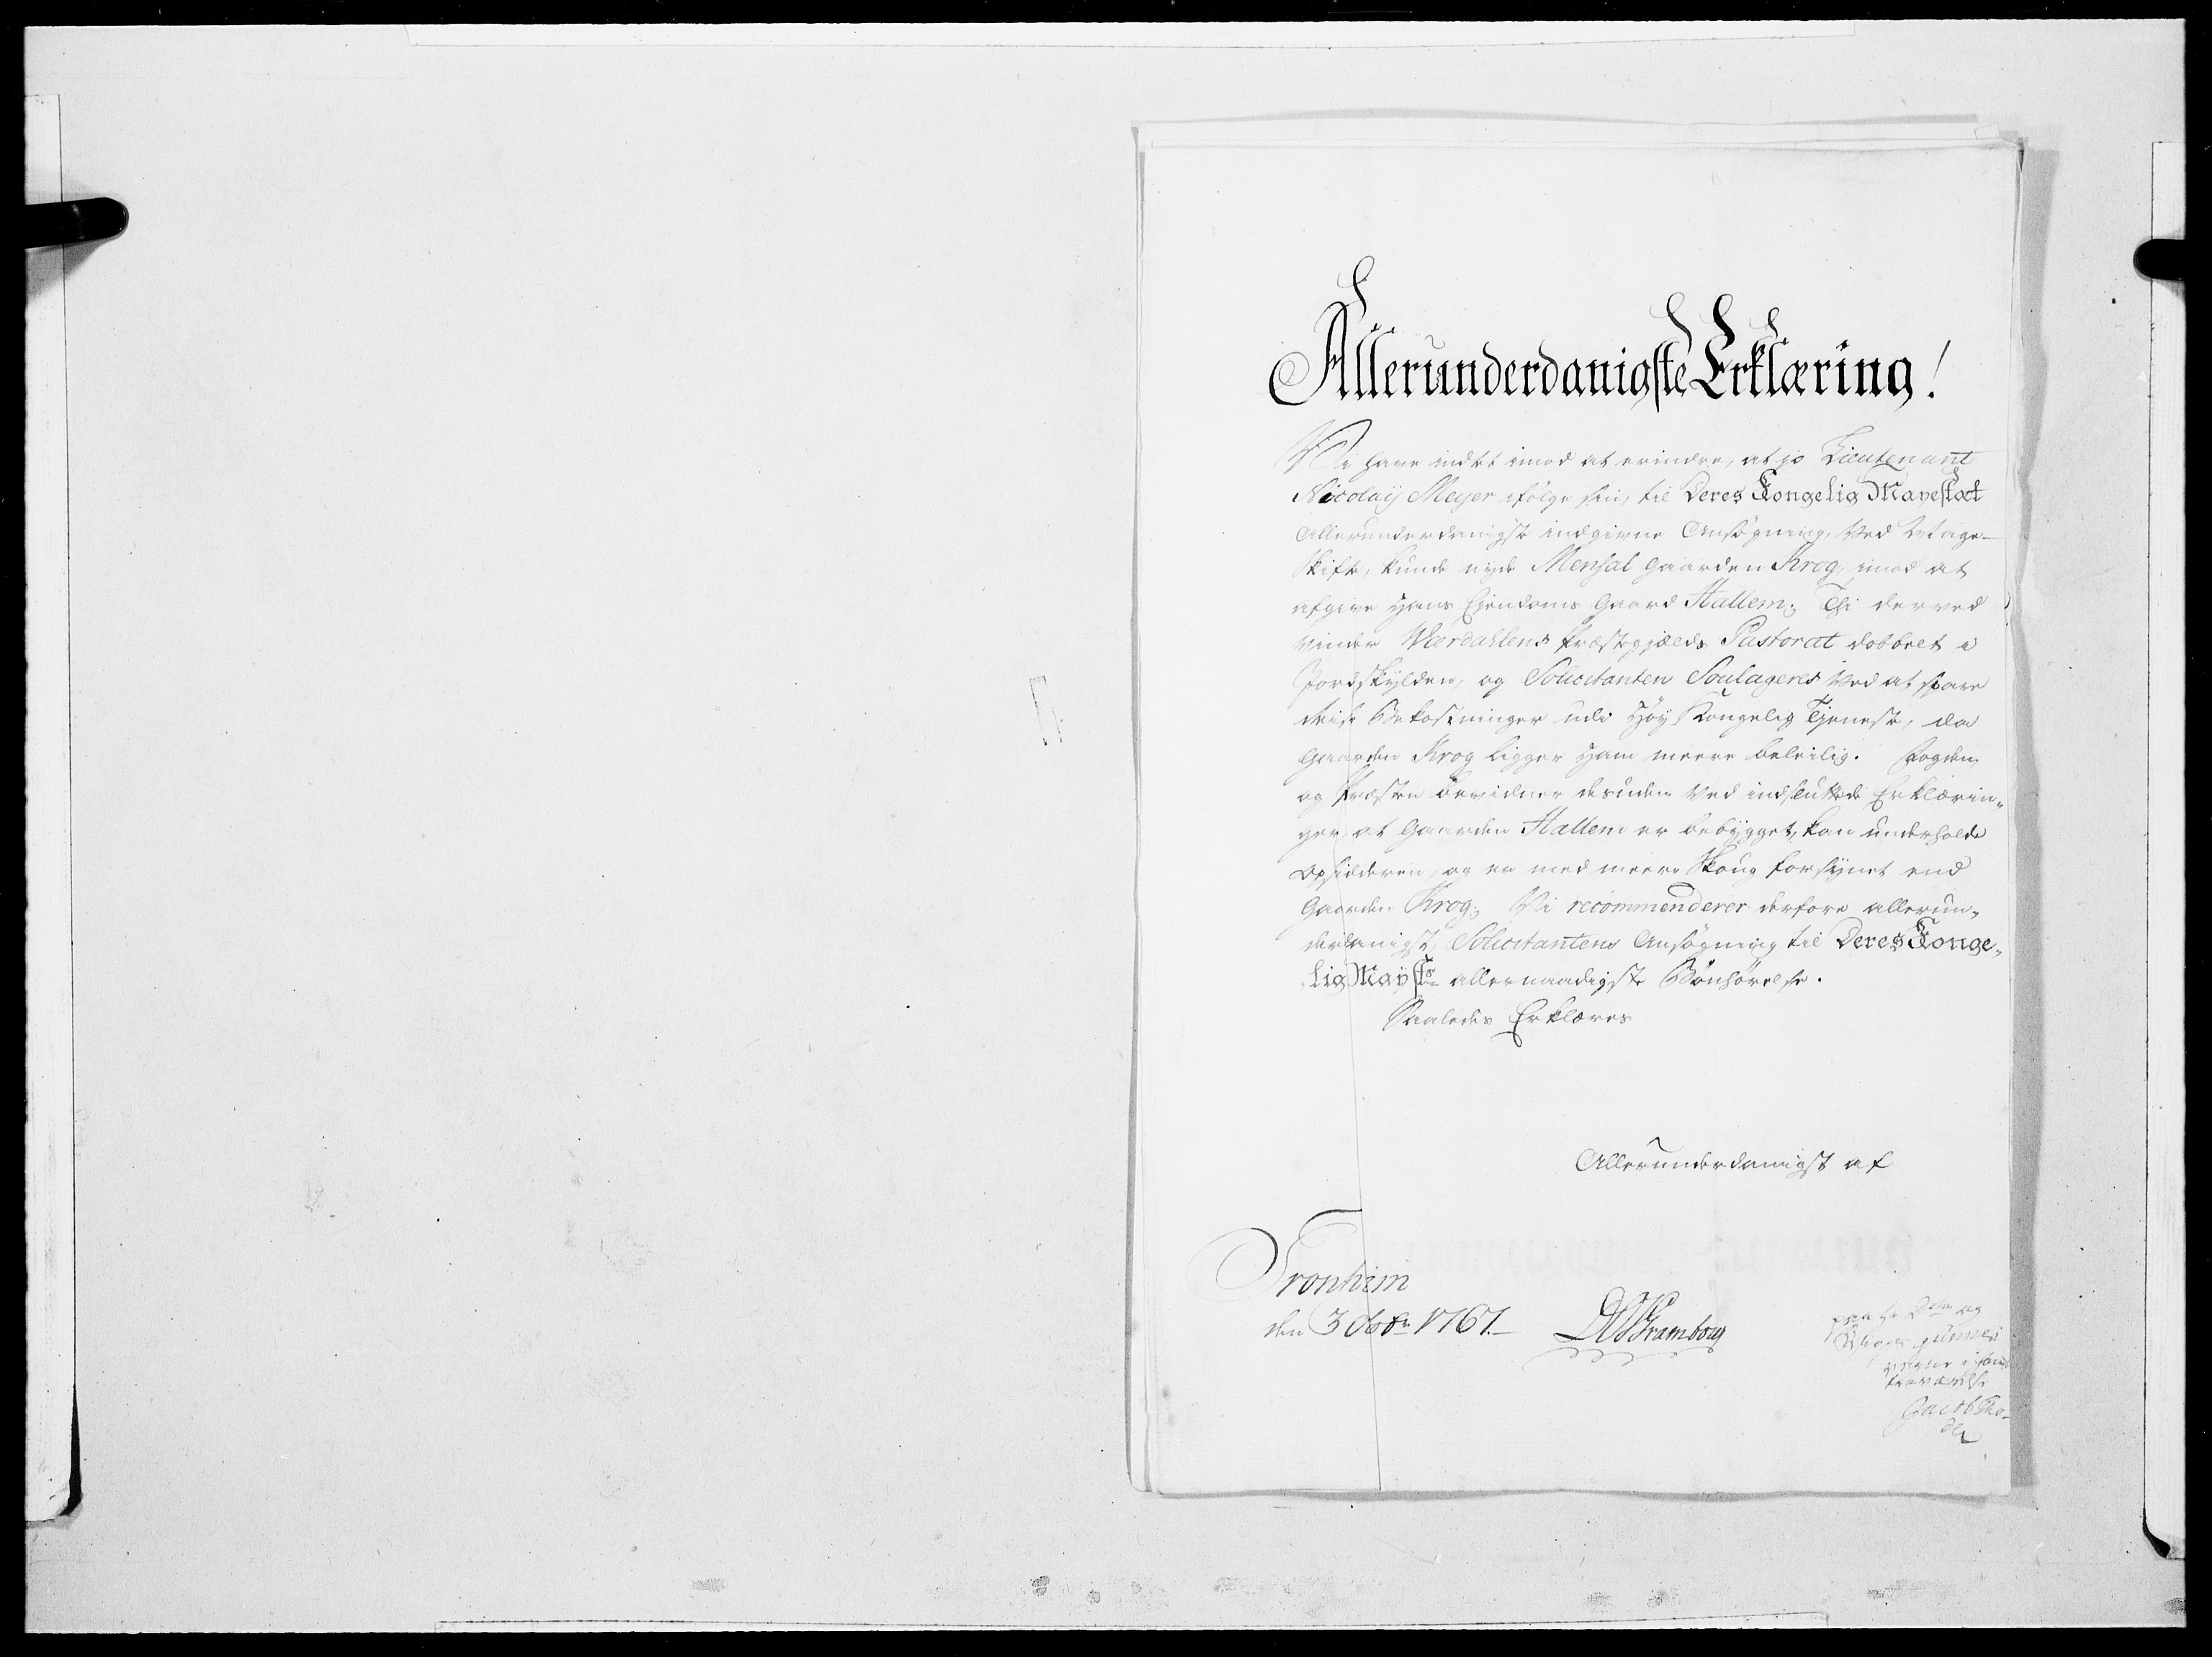 Allerunderdanigste Erklæring!
Vi have indtet imod at erindre, at jo Lieutenant
Nicolaij Meyer ifølge sin, til Deres Kongelig Mayestæt
Allerunderdanigst indgivne Ansøgning, Ved
Skifte, kunde nyde Mensal gaarden Krog, imod at
afgive Hans Ejendoms Gaard Hallem; Thi derved
vinder Værdahlens Præstegjælds Pastorat dobbelt i
Jordskylden, og Solicitanten Soulageres Ved at spare
deise Bekostninger udi Høy Kongelig Tjeneste, da
Gaarden Krog ligger Ham meere beleilig. Fogden
og Præsten bevidner desuden Ved indsluttede Erklærin-
ger, at Gaarden Hallem er bebygget, kan underholde
Opsidderen, og er med meere Skoug forsynet end
Gaarden Krog; Vi recommenderer derfore allerun-
derdanigst, Solicitantens Ansøgning til Deres Konge-
lig Maysts allernaadigste Bønhørelse.
Saaledes Erklæres
Allerunderdanigst af
Tronhiem
den 3 Octbr 1767.
og
i hans
fraværelse
Jacob